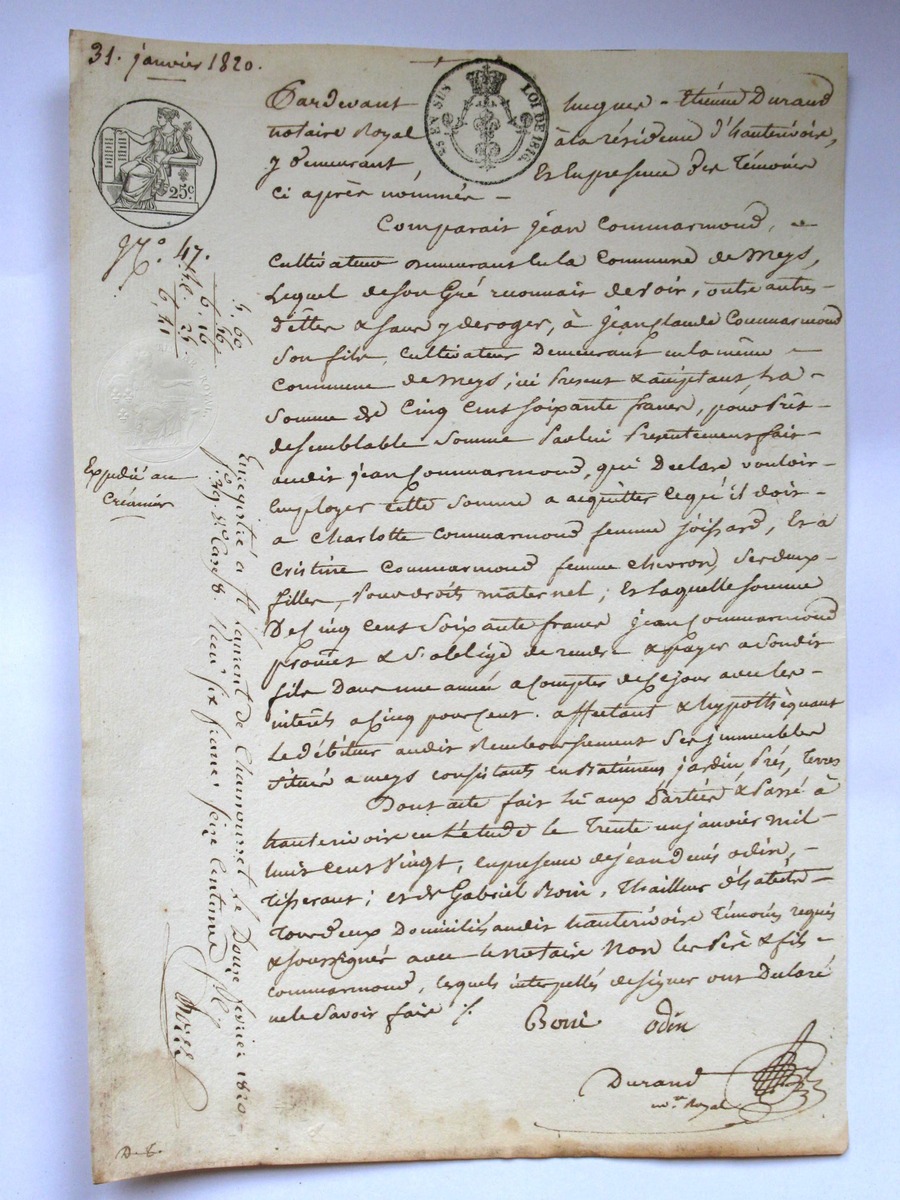 31. janvier 1820.
25 EN SUS LOI DE 1816
25c.
N.° 47.
Expédié au
Créancier
Pardevant hugues - Etiénne Durand
notaire Royal à la résidence d'hauterivoire,
y demeurant Et En presence des Témoins
ci après nommés -
Comparait jean Commarmond,
Cultivateur demeurant en la Commune de Meys,
Lequel de son Gré reconnait devoir, outre autres
dettes & sans y deroger, à jean Claude Commarmond
Son fils, Cultivateur Demeurant en la même
Commune de Meys, ici Present & acceptant, La
Somme de Cinq Cent soixante francs, pour Prêt
de semblable Somme Par lui Presentement fait
audit jean Commarmond, qui Declare vouloir
Employer cette Somme a acquitter ce qu'il doit
a Charlotte Commarmond femme joissard, Et à
Cristine Commarmond femme chevron, Ses deux
filles, Pour droits maternel; Et Laquelle Somme
De Cinq Cent Soixante francs jean Commarmond
promet & s'obblige de rendre & payer a Sondit
fils Dans une année a Compter de Ce jour avec les
interêts a Cinq pour Cent. affectant & hypothèquant
Le débiteur audit Remboursement Ses immeubles
Situés a meys consistants en Batiments, jardin, Prés, Terres
Dont acte fait Lu aux Parties & Passé à
hauterivoire en L'étude le Trente un janvier mil
huit Cent Vingt, en presence de jean denis odin,
Tisserant; et de Gabriel Boin, Thailleur d'habits
Tous deux Domiciliés audit hauterivoire Témoins requis
& soussignés avec le notaire Non les Père & fils
Commarmond, lesquels interpellés de signer ont Declaré
ne le Savoir faire ./.
Boin odin
Durand
no.re Royal
Enregistré à St Laurent de Chamousset le Douze fevrier 1820
f.° 39 R.° Cases 8. Recu six francs seize Centimes
D. 6.